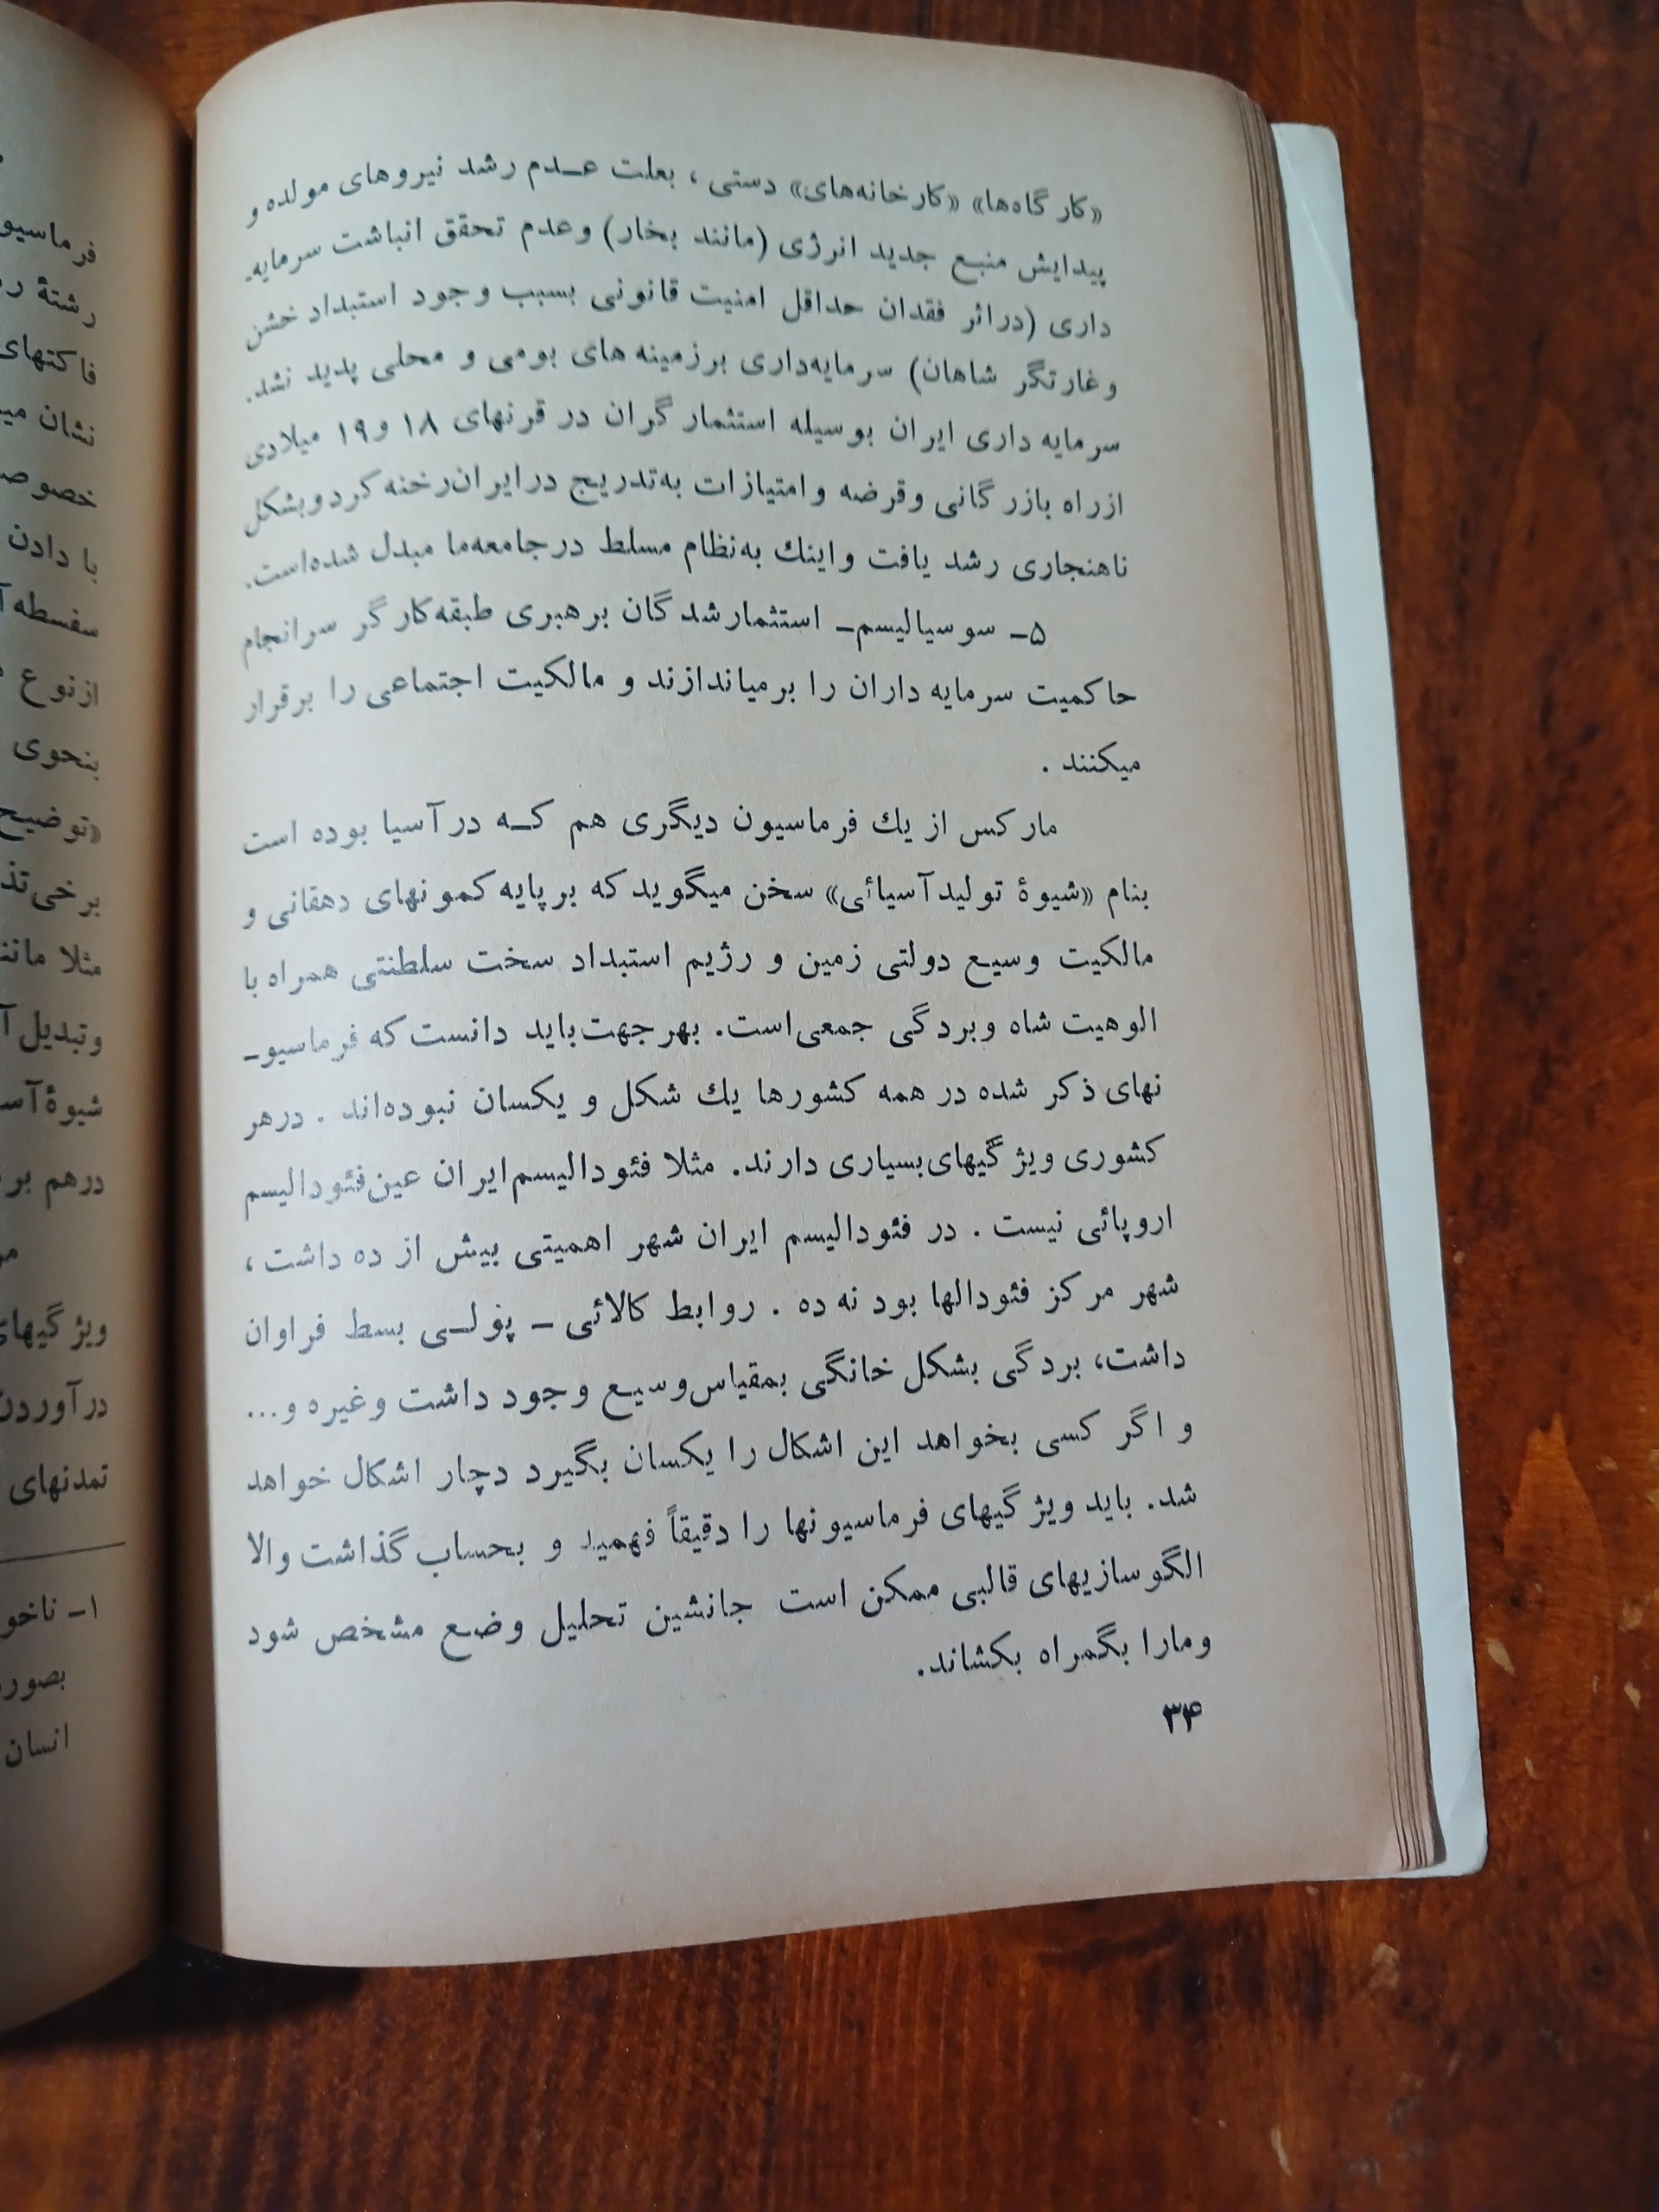 «کارگاه‌ها» «کارخانه‌های» دستی ، بعلت عـدم رشد نیروهای مولده و
پیدایش منبع جدید انرژی (مانند بخار) وعدم تحقق انباشت سرمایه‌ـ
داری (دراثر فقدان حداقل امنیت قانونی بسبب وجود استبداد خشن
وغارتگر شاهان) سرمایه‌داری برزمینه های بومی و محلی پدید نشد.
سرمایه داری ایران بوسیله استثمار گران در قرنهای ۱۸ و۱۹ میلادی
ازراه بازرگانی وقرضه وامتیازات به‌تدریج درایران‌رخنه کردوبشکل
ناهنجاری رشد یافت واینك به‌نظام مسلط درجامعه‌ما مبدل شده‌است.
۵ـ سوسیالیسم‌ـ استثمارشدگان برهبری طبقه‌کارگر سرانجام
حاکمیت سرمایه داران را برمیاندازند و مالکیت اجتماعی را برقرار
میکنند .
مارکس از یك فرماسیون دیگری هم کـه درآسیا بوده است
بنام «شیوۀ تولیدآسیائی» سخن میگوید که بر پایه کمونهای دهقانی و
مالکیت وسیع دولتی زمین و رژیم استبداد سخت سلطنتی همراه با
الوهیت شاه وبردگی جمعی‌است. بهرجهت‌باید دانست که فرماسیوـ
نهای ذکر شده در همه کشورها یك شکل و یکسان نبوده‌اند . درهر
کشوری ویژگیهای‌بسیاری دارند. مثلا فئودالیسم‌ایران عین‌فئودالیسم
اروپائی نیست . در فئودالیسم ایران شهر اهمیتی بیش از ده داشت ،
شهر مرکز فئودالها بود نه ده . روابط کالائی ـ پولـی بسط فراوان
داشت، بردگی بشکل خانگی بمقیاس‌وسیع وجود داشت وغیره و...
و اگر کسی بخواهد این اشکال را یکسان بگیرد دچار اشکال خواهد
شد. باید ویژگیهای فرماسیونها را دقیقاً فهمید و بحساب گذاشت والا
الگوسازیهای قالبی ممکن است جانشین تحلیل وضع مشخص شود
ومارا بگمراه بکشاند.
۳۴
رشتۀ
فاکتهای
نشان
با دادن
ازنوع
بنحوی
«توضیح
مثلا
وتبدیل
درهم
درآوردن
تمدنهای
۱ـ
انسان